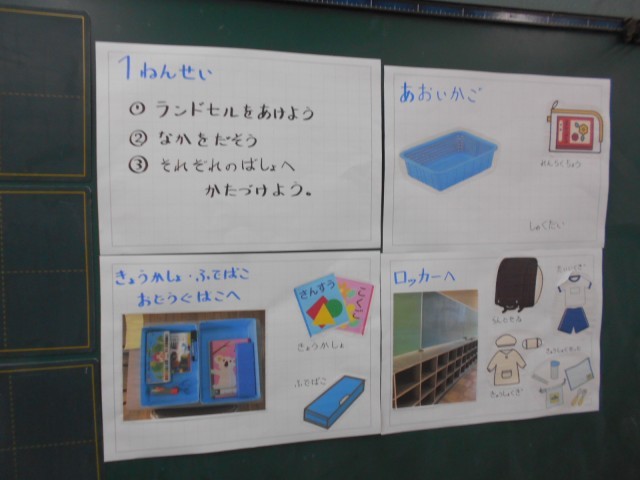 1ねんせい
① ランドセルをあけよう
② なかをだそう
③ それぞれのばしょへ
かたづけよう。
あおいかご
れんらくちょう
しゅくだい
きょうかしょ・ふでばこ
おどうぐばこへ
さんすう
こくご
きょうかしょ
ふでばこ
ロッカーへ
らんどせる